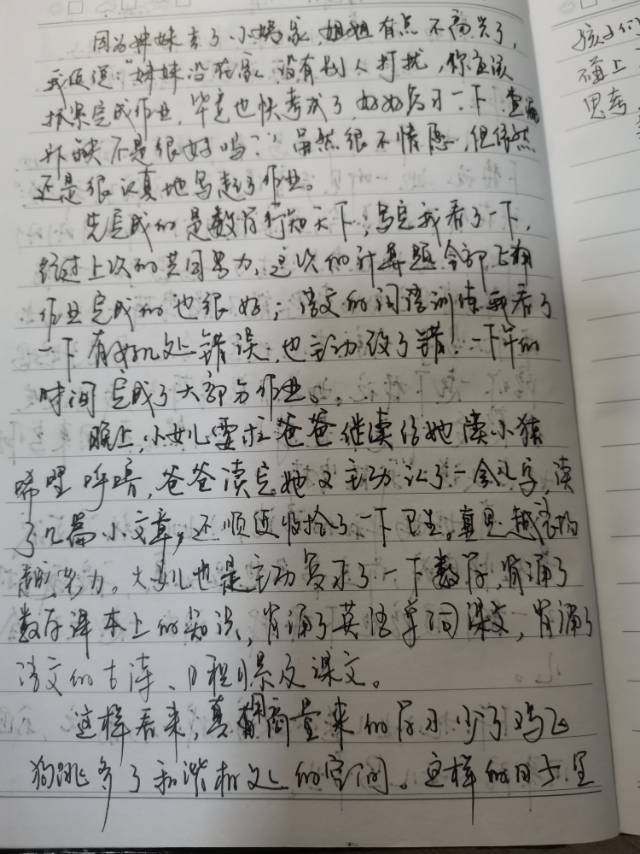 因为妹妹去了小姨家，姐姐有点不高兴了，
我便说："妹妹没在家，没有别人打扰，你应该
抓紧完成作业，毕竟也快考试了，好好复习一下，查漏
补缺不是很好吗？"虽然很不情愿，但依然
还是很认真地写起了作业。
先完成的是数学行知天下，写完我看了一下，
经过上次的共同努力，这次的计算题全部正确
作业完成的也很好；语文的词语训练我看了
一下有好几处错误，也主动改了错，一下午的
时间完成了大部分作业。
晚上，小女儿要求爸爸继续给她读小猪
唏哩呼噜，爸爸读完她又主动认了一会儿字，读
了几篇小文章，还顺便收拾了一下卫生。真是越夸
越努力。大女儿也是主动复习了一下数学，背诵了
数学课本上的知识，背诵了英语单词课文，背诵了
语文的古诗、日积月累及课文。
这样看来，真商量来的学习少了鸡飞
狗跳多了和谐相处的空间。这样的日子里
孩子们
碰上
思考